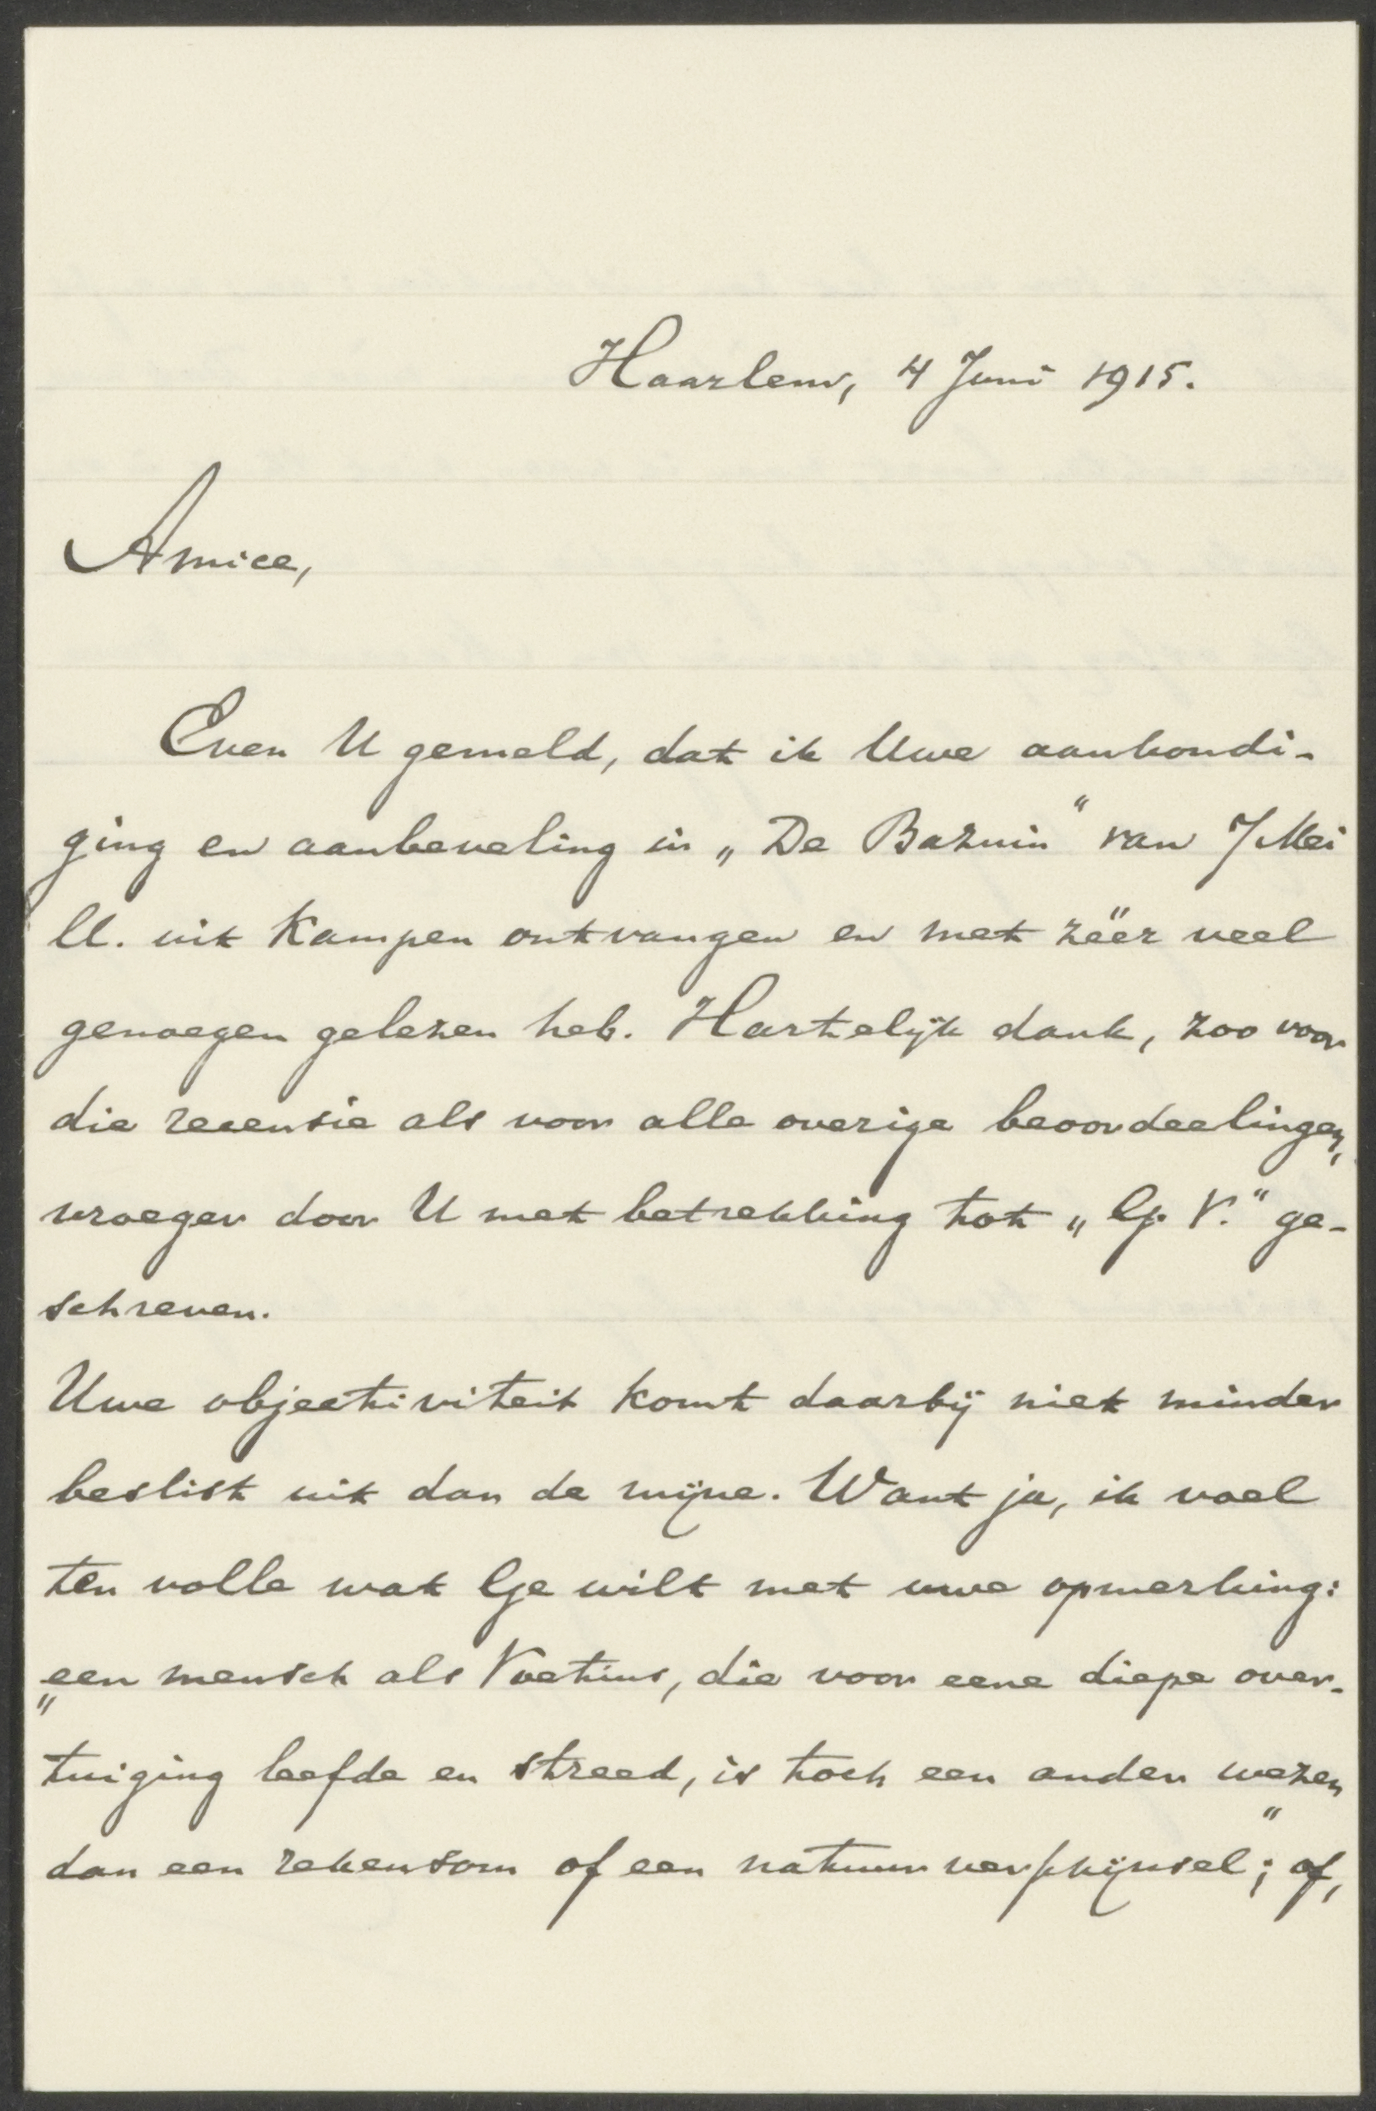 Haarlem, 4 Juni 1915.
Amice,
Even U gemeld, dat ik Uwe aankondi-
ging en aanbeveling in „De Bazuin“ van 7 Mei
ll. uit Kampen ontvangen en met zéér veel
genoegen gelezen heb. Hartelijk dank, zoo voor
die recensie als voor alle overige beoordeelingen,
vroeger door U met betrekking tot „G. V.“ ge-
schreven.
Uwe objectiviteit komt daarbij niet minder
beslist uit dan de mijne. Want ja, ik voel
ten volle wat Ge wilt met uwe opmerking:
„een mensch als Voetius, die voor eene diepe over-
tuiging leefde en streed, is toch een ander wezen
dan een rekensom of een natuurverschijnsel“; of,